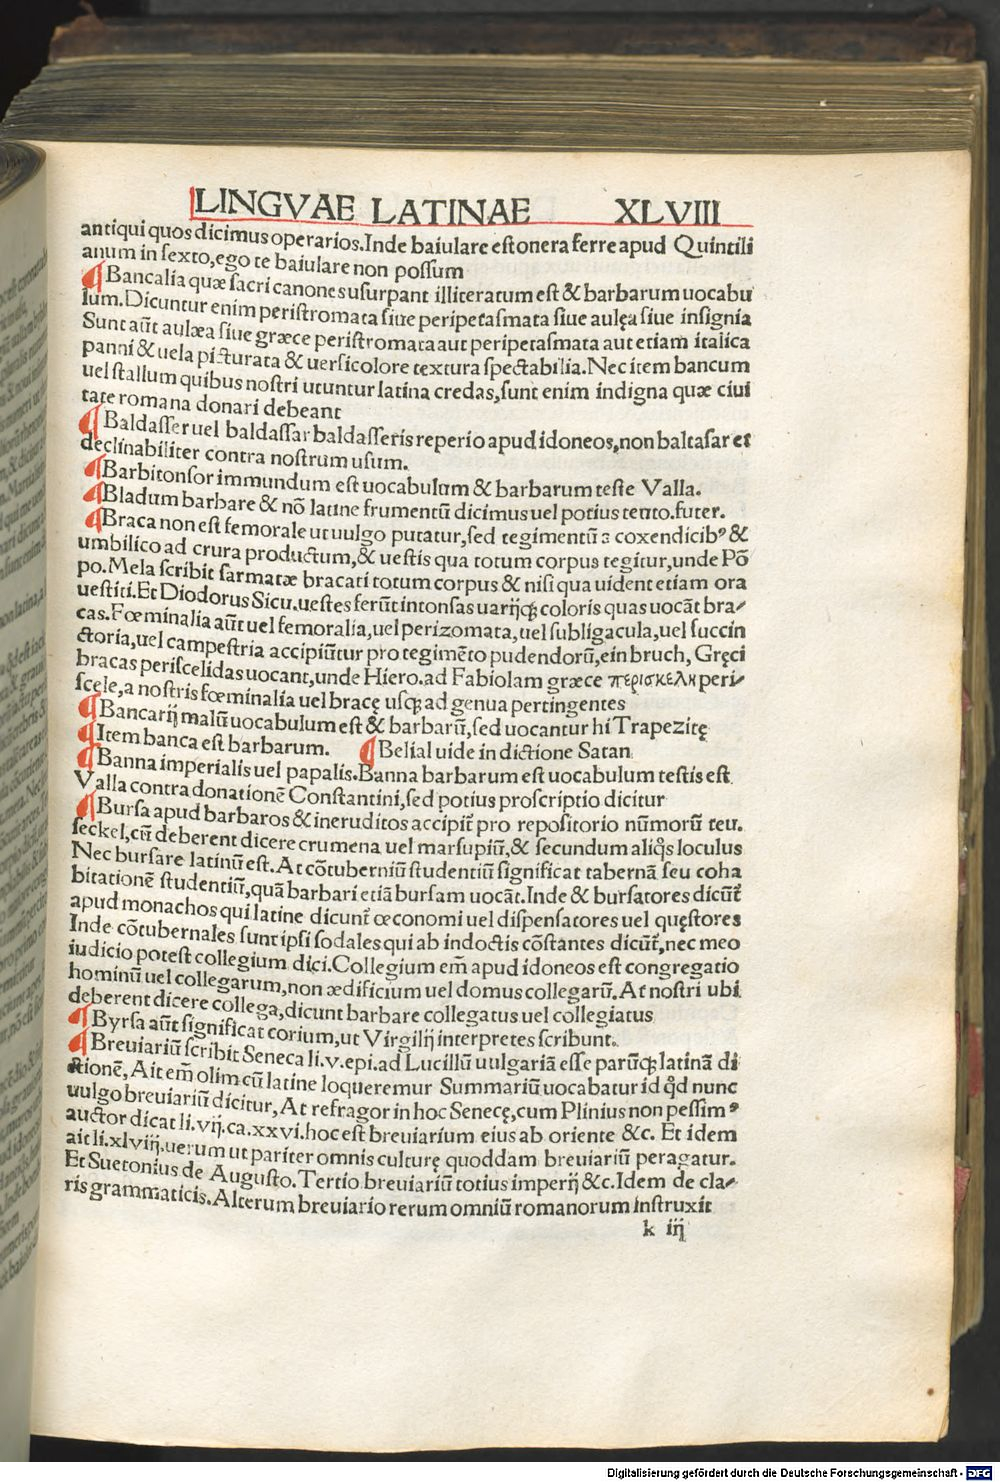 LINGVAE LATINAE XLVIII
antiqui quos dicimus operarios.Inde baiulare est onera ferre apud Quintili
anum in sexto,ego te baiulare non possum
¶Bancalia quæ sacri canones usurpant illiteratum est & barbarum uocabu
lum.Dicuntur enim peristromata siue peripetasmata siue aulęa siue insignia
Sunt aūt aulæa siue græce peristromata aut peripetasmata aut etiam italica
panni & uela picturata & uersicolore textura spectabilia.Nec item bancum
uel stallum quibus nostri utuntur latina credas,sunt enim indigna quæ ciui
tate romana donari debeant
¶Baldasser uel baldassar baldasseris reperio apud idoneos,non baltasar et
declinabiliter contra nostrum usum.
¶Barbitonsor immundum est uocabulum & barbarum teste Valla.
¶Bladum barbare & nō latine frumentū dicimus uel potius teuto.futer.
¶Braca non est femorale ut uulgo putatur,sed tegimentū a coxendicibꝰ &
umbilico ad crura productum,& uestis qua totum corpus tegitur,unde Pō
po.Mela scribit sarmatæ bracati totum corpus & nisi qua uident etiam ora
uestiti.Et Diodorus Sicu.uestes ferūt intonsas uarijqꝫ coloris quas uocāt bra⸗
cas.Fœminalia aūt uel femoralia,uel perizomata,uel subligacula,uel succin
ctoria,uel campestria accipiūtur pro tegimēto pudendorū,ein bruch, Gręci
bracas periscelidas uocant,unde Hiero.ad Fabiolam græce περισκελη peri⸗
scele,a nostris fœminalia uel bracę usqꝫ ad genua pertingentes
¶Bancarij malū uocabulum est & barbarū,sed uocantur hi Trapezitę
¶Item banca est barbarum. ¶Belial uide in dictione Satan
¶Banna imperialis uel papalis.Banna barbarum est uocabulum testis est
Valla contra donationē Constantini,sed potius proscriptio dicitur
¶Bursa apud barbaros & ineruditos accipit̄ pro repositorio nūmorū teu.
seckel,cū deberent dicere crumena uel marsupiū,& secundum aliq̄s loculus
Nec bursare latinū est.At cōtuberniū studentiū significat tabernā seu coha
bitationē studentiū,quā barbari etiā bursam uocāt.Inde & bursatores dicūt̄
apud monachos qui latine dicunt̄ œconomi uel dispensatores uel quęstores
Inde cōtubernales sunt ipsi sodales qui ab indoctis cōstantes dicūt̄,nec meo
iudicio potest collegium dici.Collegium em̄ apud idoneos est congregatio
hominū uel collegarum,non ædificium uel domus collegarū.At nostri ubi
deberent dicere collega,dicunt barbare collegatus uel collegiatus
¶Byrsa aūt significat corium,ut Virgilij interpretes scribunt.
¶Breuiariū scribit Seneca li.v.epi.ad Lucillū uulgariā esse parūqꝫ latinā di
ctionē,Ait em̄ olim cū latine loqueremur Summariū uocabatur id qd̄ nunc
uulgo breuiariū dicitur,At refragor in hoc Senecę,cum Plinius non pessimꝰ
auctor dicat li.vij.ca.xxvi.hoc est breuiarium eius ab oriente &c. Et idem
ait li.xlviij.uerum ut pariter omnis culturę quoddam breuiariū peragatur.
Et Suetonius de Augusto.Tertio breuiariū totius imperij &c.Idem de cla⸗
ris grammaticis.Alterum breuiario rerum omniū romanorum instruxit
k iij
Digitalisierung gefördert durch die Deutsche Forschungsgemeinschaft - DFG